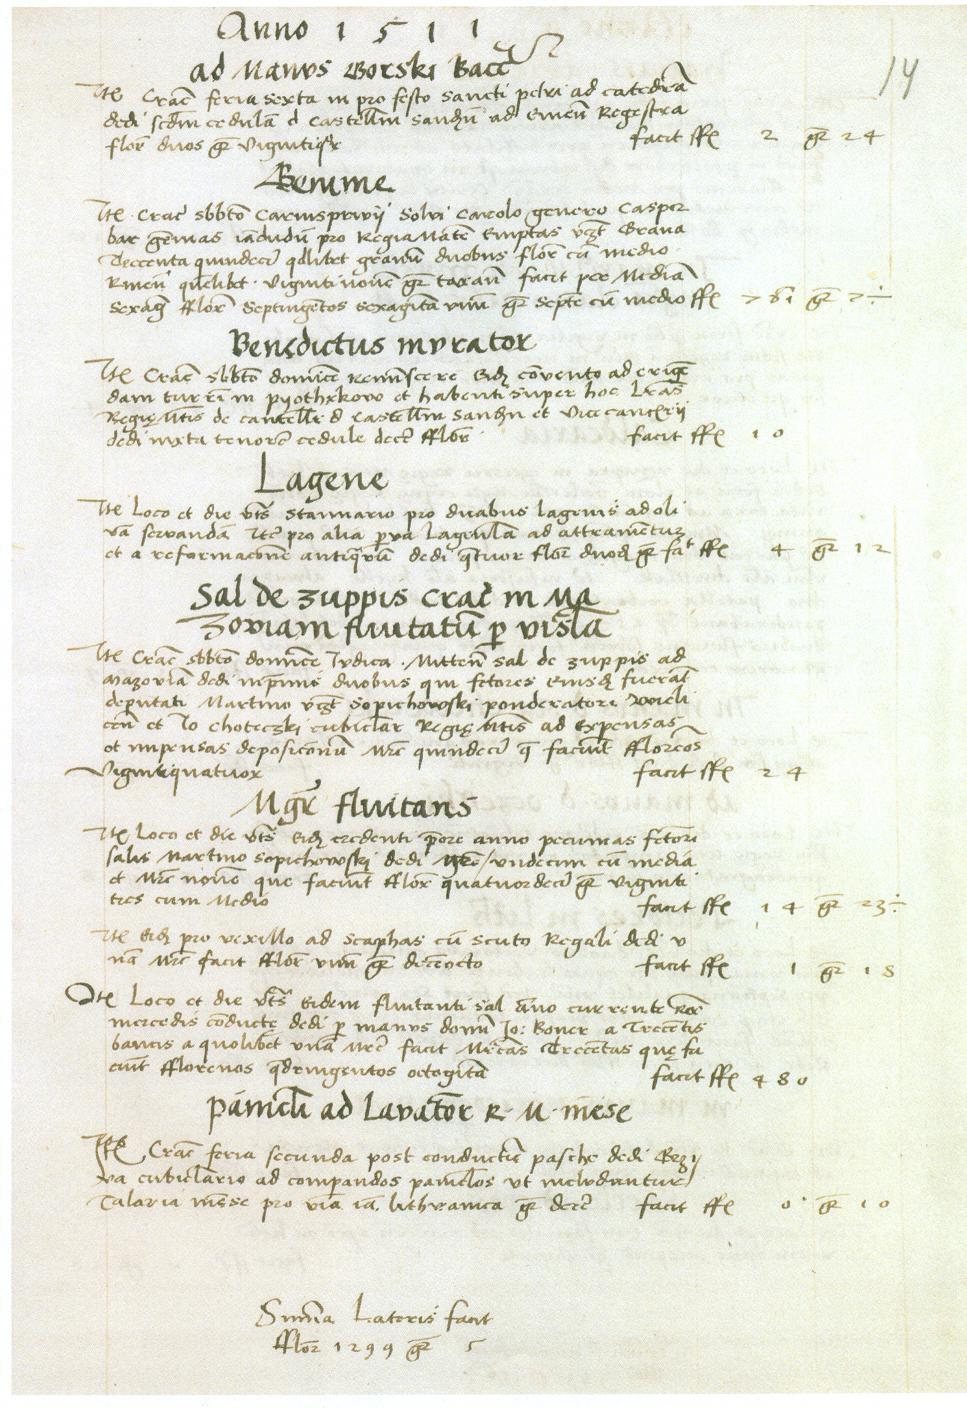 Anno 1511
14
ad Manus Borski Bacc
Ite Crac feria sexta in pro festo sancti petri ad catedra
dedi scdm cedula d Castellm Sandn ad Emen Regestra
flor duos gr vigintiqr facit ffl 2 gr 24
Gemme
Ite Crac sbbto Carnisprivij Solvi Carolo genero Casper
bar gemas iadudu pro Regia Mate Emptas vczt Grana
Ducenta quindeci qdlibet granu duobus flor cu medio
numen quelibet viginti nove gr taxan facit per Media
sexag fflor septingetos sexagita unu gr septe cu medio ffl 761 gr 7÷
Benedictus murator
Ite Crac sbbto domice Reminscere Eid convento ad erige
dam turri in pyothrkovo et habenti super hoc lras
Regie Mtis de cancellr d Castellm Sandn et vicecancrij
dedi iuxta tenore cedule dece fflor facit ffl 10
Lagene
Ite Loco et die vts Stannario pro duabus lagenis ad oli
va servanda Ite pro alia pva Lagenula ad attramentu
et a reformacone antiqua dedi qtuor flor duod gr fat ffl 4 gr 12
Sal de zuppis Crac in Ma
zoviam fluitatu p visla
Ite Crac sbbto domice Judica Mitten sal de zuppis ad
Mazovia dedi inprimis duobus qui fctores Eiusd fuerat
deputati Martino vczt Sopichowski ponderatori vieli
cen et Jo Choteczki cubiclar Regie Mtis ad expensas
et impensas deposiconu Mrc quindeci q faciut ffloreos
vigintiquatuor facit ffl 24
Mgr fluitans
Ite Loco et die vts Eid credenti pore anno pecunias fctori
salis Martino Sopichowski dedi Mrc undecim cu media
et Mrc nove que faciut fflor quatuordeci gr viginti
tres cum Medio facit ffl 14 gr 23÷
Ite Eid pro vexillo ad scaphas cu scuto Regali dedi u
na Mrc facit fflor unu gr deceocto facit ffl 1 gr 18
Ite Loco et die vts Eidem fluitanti sal ano currente
mercedis conducte dedi p manus domi Jo: Boner a Trecetis
bancis a quolibet una Mrc facit Mrcas Trecetas que fa
ciut fflorenos qdringentos octogita facit ffl 480
panicli ad Lavator R M mese
Ite Crac feria secunda post conductu pasche dedi
va cubiclario ad compandos paniclos ut includantur
Talaria mese pro via ia lithvanica gr dece facit ffl 0 gr 10
Suma Lateris facit
fflor 1299 gr 5